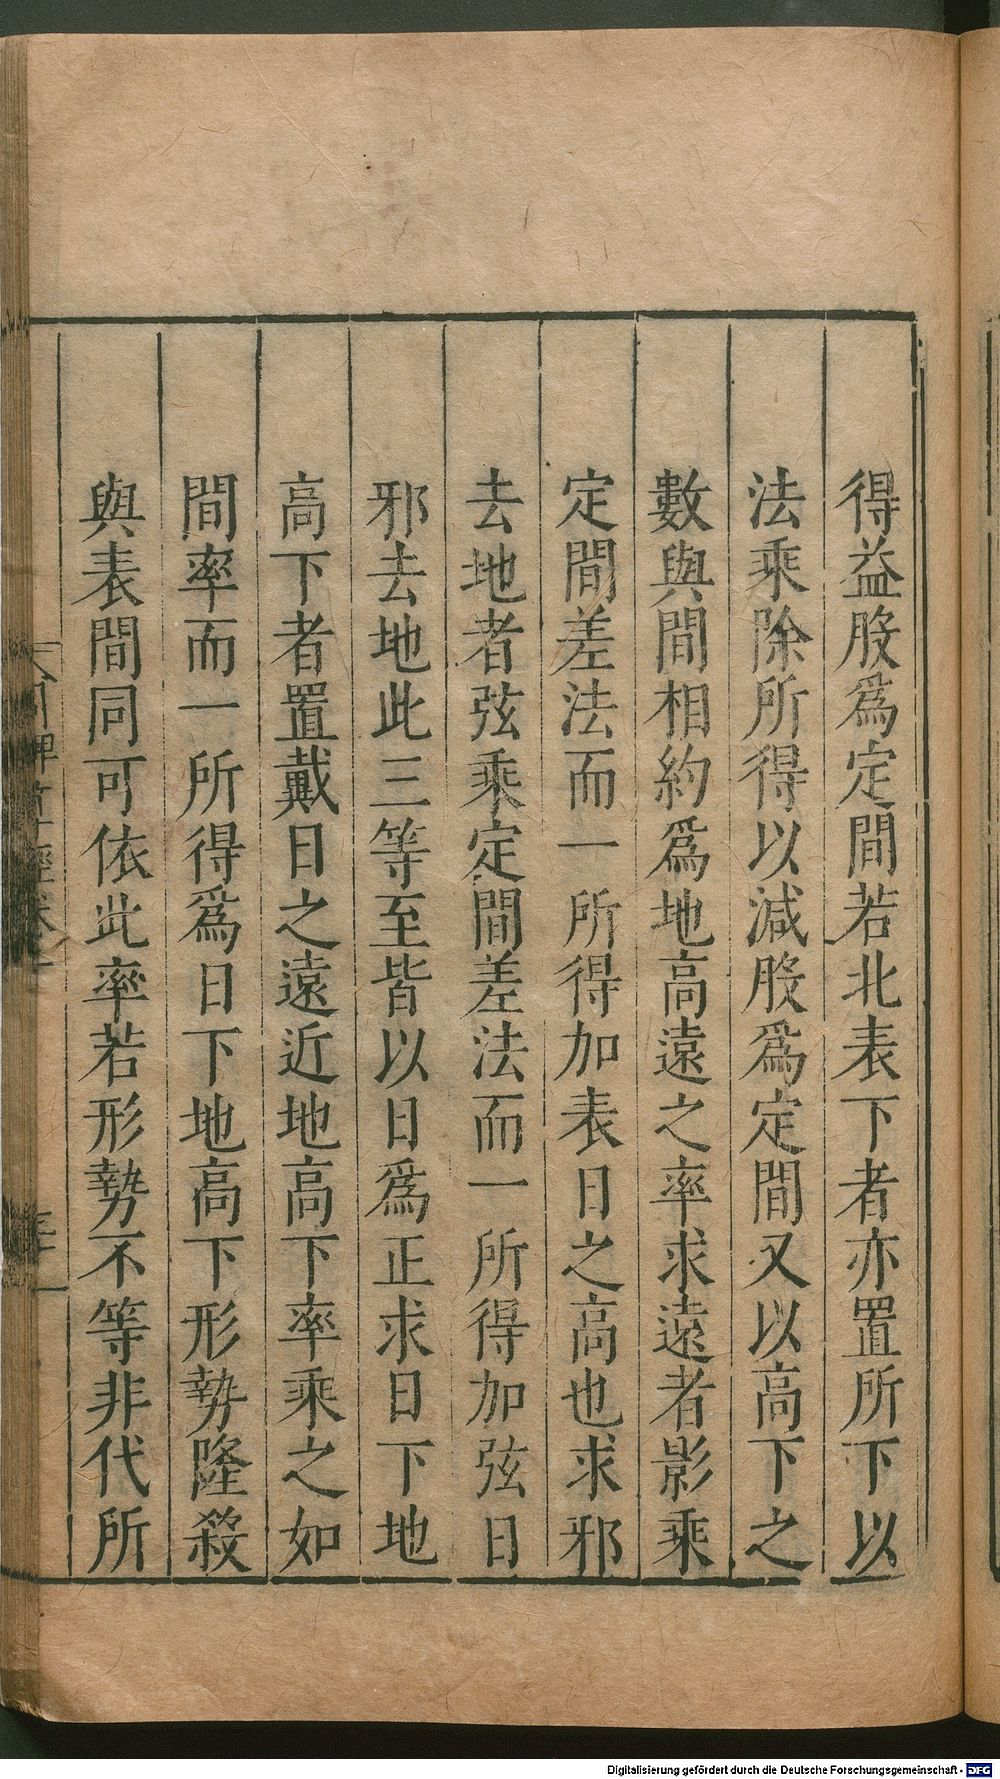 得益股爲定間若北表下者亦置所下以
法乘除所得以減股爲定間又以高下之
數與間相約爲地高遠之率求遠者影乘
定間差法而一所得加表日之高也求邪
去地者弦乘定間差法而一所得加弦日
邪去地此三等至皆以日爲正求日下地
高下者置戴日之遠近地高下率乘之如
間率而一所得爲日下地高下形勢隆殺
與表間同可依此率若形勢不等非代所
Digitalisierung gefördert durch die Deutsche Forschungsgemeinschaft - DFG